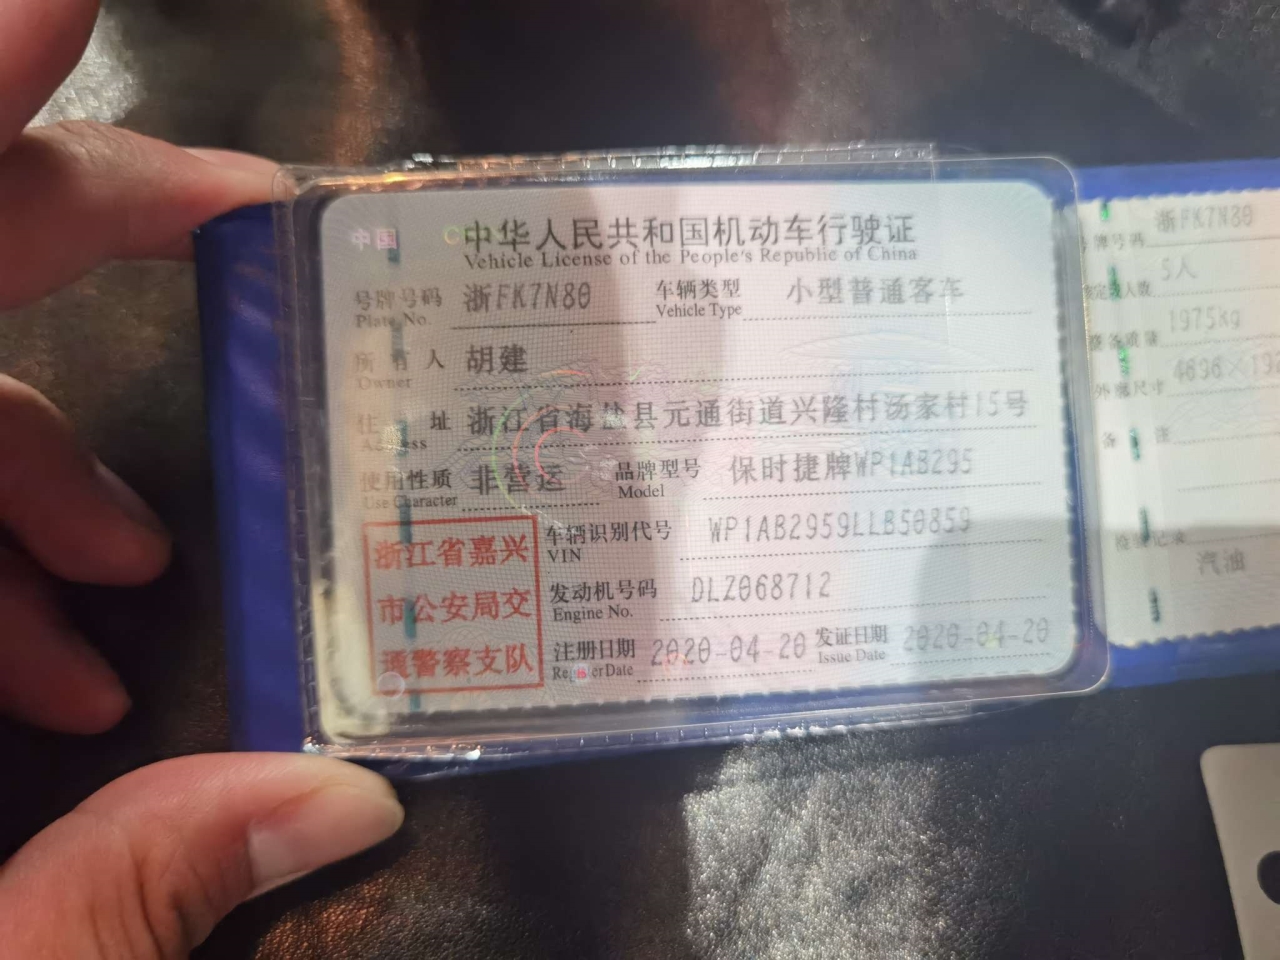 中国
中华人民共和国机动车行驶证
Vehicle License of the People's Republic of China
号牌号码 浙FK7N80 车辆类型 小型普通客车
Plate No. Vehicle Type
所有人 胡建
Owner
住址 浙江省海盐县元通街道兴隆村汤家村15号
Address
使用性质 非营运 品牌型号 保时捷牌WP1AB295
Use Character Model
浙江省嘉兴
市公安局交
通警察支队
车辆识别代号 WP1AB2959LLB50859
VIN
发动机号码 DLZ068712
Engine No.
注册日期 2020-04-20 发证日期 2020-04-20
Register Date Issue Date
号牌号码 浙FK7N80
核定载人数 5人
整备质量 1975kg
外廓尺寸
备注
检验记录
汽油